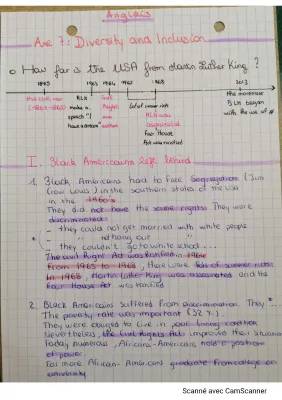 Anglais
Axe 7: Diversity and Inclusion
o How far is the USA from Martin Luther King ?
1865 1963 1964 1968 2013
the civil war MLK civil lot of inner riots the movement
(1861-1865) made a Rights MLK was BLM began
speech "I assassinated with the use of #
have a dream" Fair House
Act was voted
I. Black Americans left behind
1. Black Americans had to face segregation (Jim
Crow Laws) in the southern states of the USA
in the 1960's
They did not have the same rights. They were
discriminated:
- they could not get married with white people
- they couldn't go to white school...
The civil Right Act was ratified in 1964
From 1965 to 1968, there were lots of summer riots
In 1968, Martin Luther King was assassinated and the
Fair House Act was ratified
2. Black Americans suffered from discrimination. They
The poverty rate was important (32 %).
They were obliged to live in poor living condition
Nevertheless the Civil Rights Act improved their situation
Today numerous, Africans-Americans hold a position
of power.
Far more African-Americans graduate from college or
university
Scanné avec CamScanner